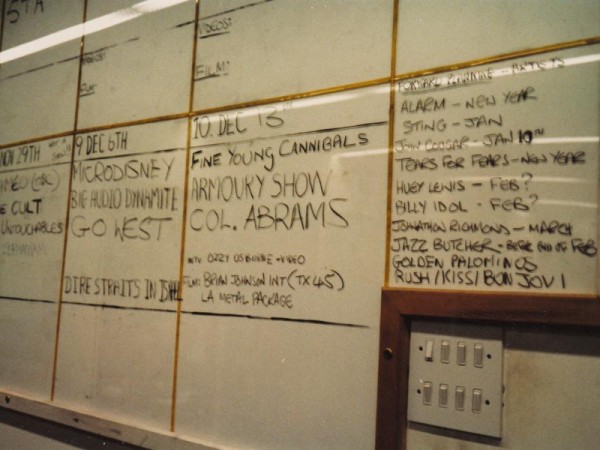 VIDEOS:
FILM:
NOV 29TH
CULT
UNTOUCHABLES
9 DEC 6TH
MICRODISNEY
BIG AUDIO DYNAMITE
GO WEST
DIRE STRAITS IN
10. DEC 13TH
FINE YOUNG CANNIBALS
ARMOURY SHOW
COL. ABRAMS
INTV OZZY OSBOURNE - VIDEO
FILM: BRIAN JOHNSON INT (TX 45)
LA METAL PACKAGE
ALARM - NEW YEAR
STING - JAN
JOHN COUGAR - JAN 10TH
TEARS FOR FEARS - NEW YEAR
HUEY LEWIS - FEB?
BILLY IDOL - FEB?
JONATHON RICHMONDS - MARCH
JAZZ BUTCHER - END OF FEB
GOLDEN PALOMINOS
RUSH/KISS/BON JOVI